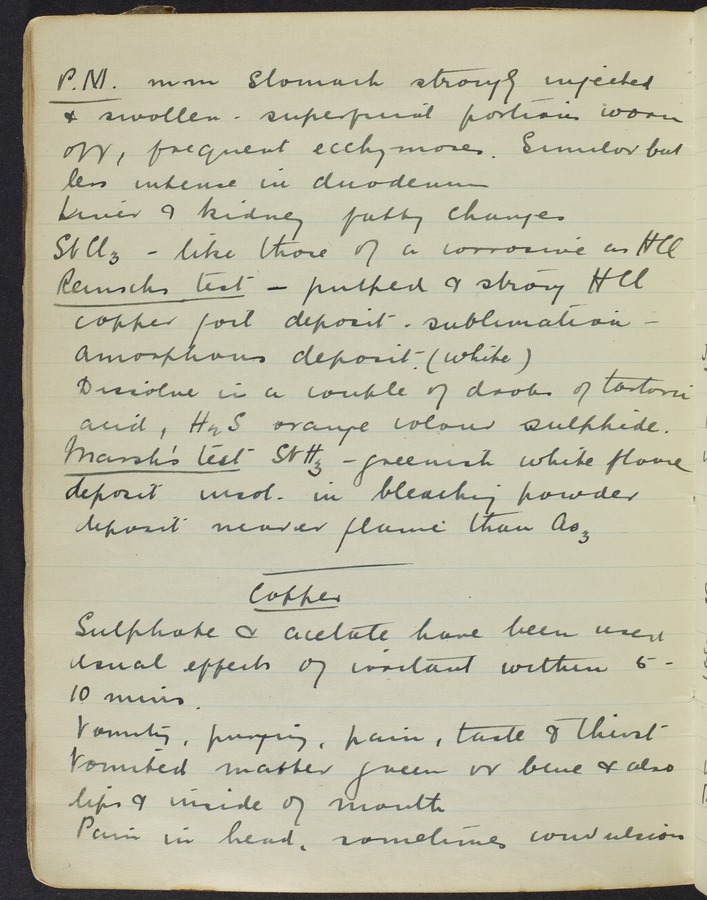 P.M. mm stomach strongly injected
& swollen - superficial portions worn
off, frequent ecchymoses. Similar but
less intense in duodenum
Liver & kidney fatty changes
SbCl3 - like those of a corrosive as HCl
Reinsch's test - & strong HCl
copper foil deposit - sublimation -
amorphous deposit. (white)
Dissolve in a couple of drops of tartaric
acid, H2S orange colour sulphide.
Marsh's test SbH3 - greenish white flame
deposit insol. in bleaching powder
deposit nearer flame than As3
Copper
Sulphate & acetate have been used
usual effects of irritant within 5-
10 mins.
Vomiting, purging, pain, taste & thirst
Vomited matter green or blue & also
lips & inside of mouth
Pain in head, sometimes convulsions